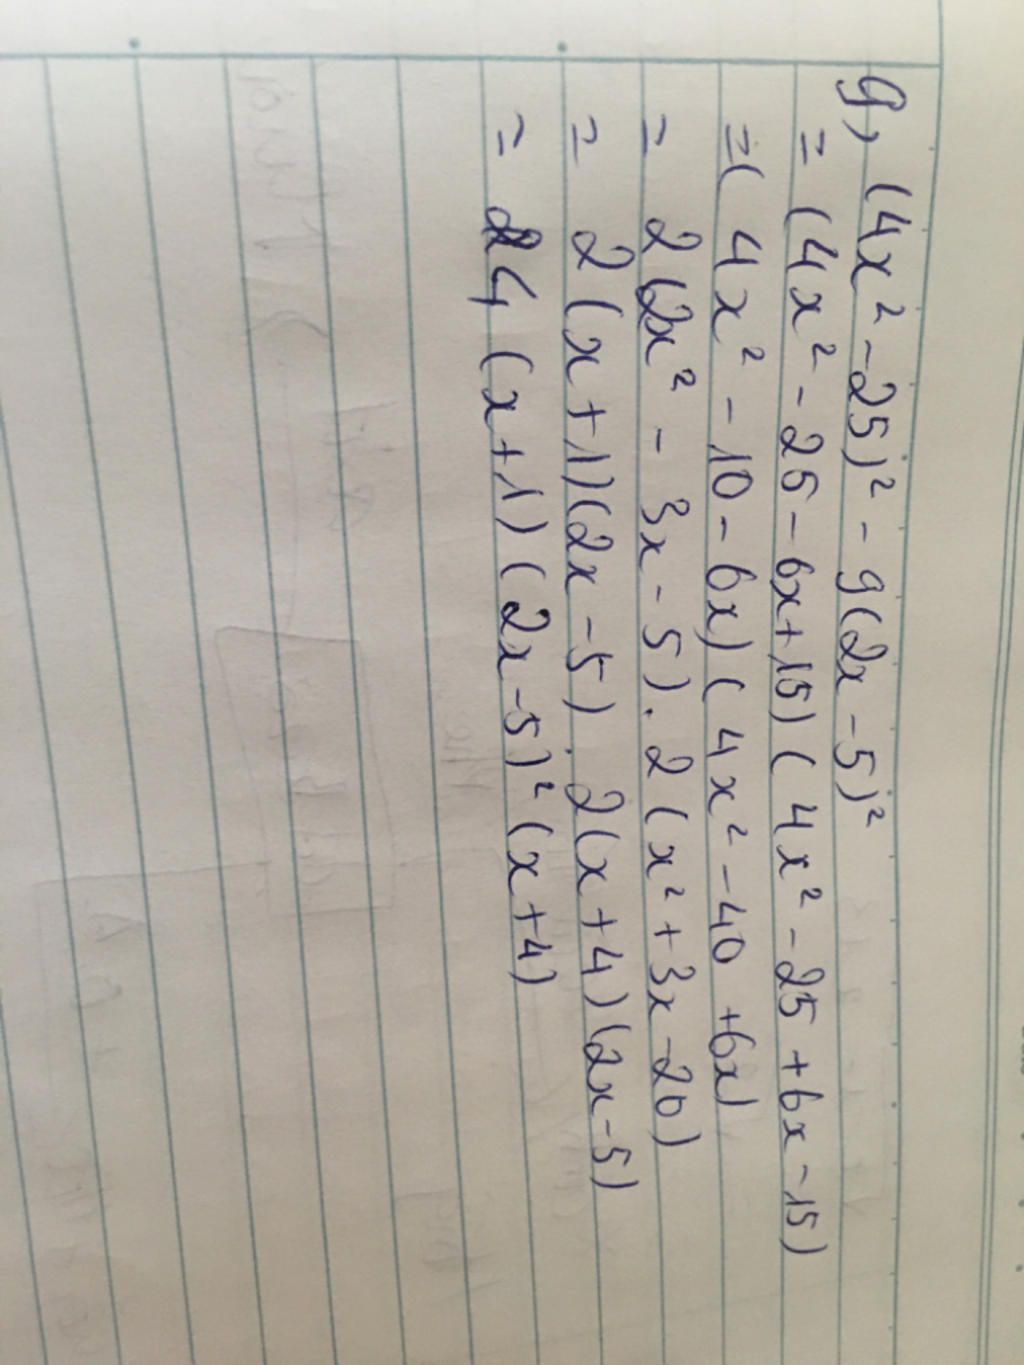 g, (4x² - 25)² - 9(2x - 5)²
= (4x² - 25 - 6x + 15) (4x² - 25 + 6x - 15)
= (4x² - 10 - 6x) (4x² - 40 + 6x)
= 2(2x² - 3x - 5). 2(x² + 3x - 20)
= 2(x + 1)(2x - 5). 2(x + 4)(2x - 5)
= 4 (x + 1) (2x - 5)² (x + 4)